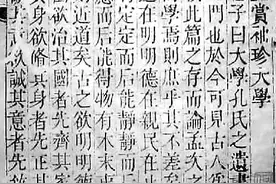 珍大學
子曰大學孔氏之遺書
門也於今可見古人爲
此篇之存而論孟次
學焉則庶乎其不差矣
在明明德在親民在止
定而后能靜靜而后
而后能得物有本末事
近道矣古之欲明明德
欲治其國者先齊其家
其身欲脩其身者先正其
誠其意者先致